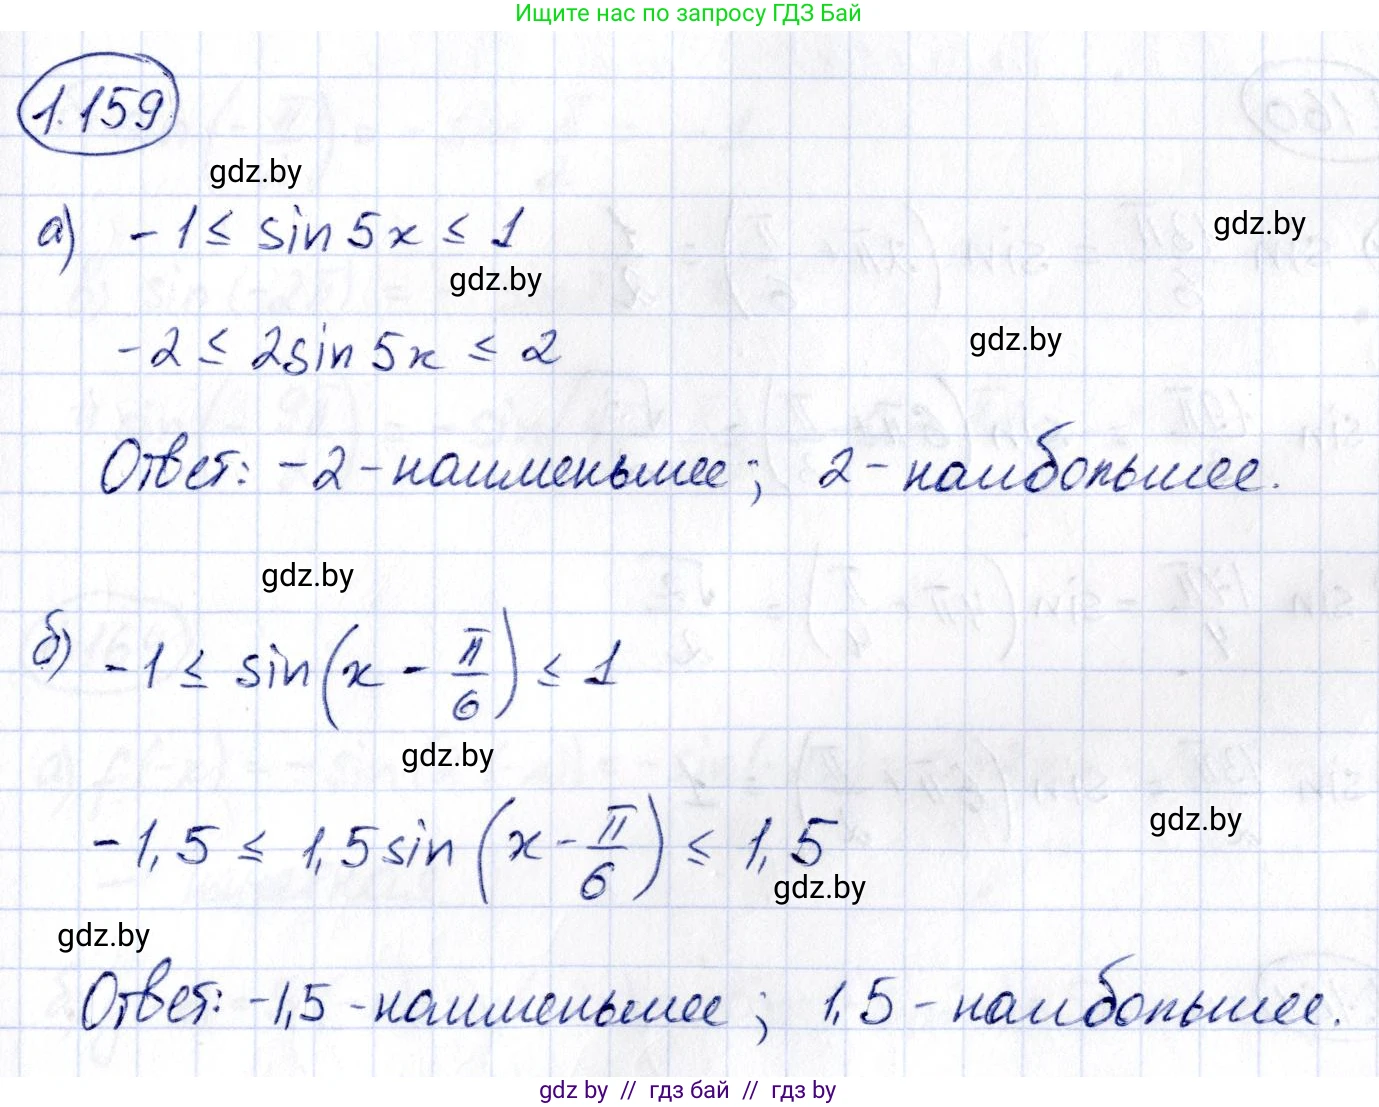 Ищите нас по запросу ГДЗ Бай
1.159
gdz.by
а) -1 ≤ sin 5x ≤ 1
gdz.by
gdz.by
-2 ≤ 2sin 5x ≤ 2
gdz.by
Ответ: -2 - наименьшее; 2 - наибольшее.
gdz.by
б) -1 ≤ sin(x - π/6) ≤ 1
gdz.by
-1,5 ≤ 1,5 sin(x - π/6) ≤ 1,5
gdz.by
gdz.by
gdz.by
Ответ: -1,5 - наименьшее; 1,5 - наибольшее.
gdz by // гдз бай // гдз by